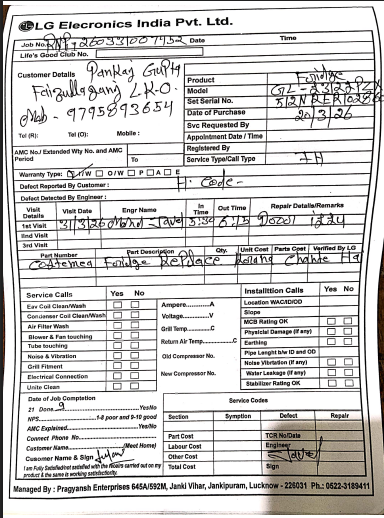 LG Elecronics India Pvt. Ltd.
Job No. RNP-
Date
Time
Life's Good Club No.
Customer Details Pankaj Gupta
Faizullaganj LKO.
Mob- 9795893654
Tel (R): Tel (O): Mobile :
Product Fridge
Model
Set Serial No.
Date of Purchase 20/3/26
Svc Requested By
Appointment Date / Time
AMC No./ Extended Wty No. and AMC
Period To
Registered By
Service Type/Call Type
Warranty Type: I/W O/W P A E
Defect Reported By Customer : H. Code-
Defect Detected By Engineer :
Visit Details Visit Date Engr Name In Time Out Time Repair Details/Remarks
1st Visit 31/3/26 Mohd 6:15
IInd Visit
3rd Visit
Part Number Part Description Qty. Unit Cost Parts Cost Verified By LG
Fridge Replace
Service Calls Yes No
Eav Coil Clean/Wash
Condenser Coil Clean/Wash
Air Filter Wash
Blower & Fan touching
Tube touching
Noise & Vibration
Grill Fitment
Electrical Connection
Unite Clean
Ampere.............A
Voltage.............V
Grill Temp.............C
Return Air Temp.............C
Old Compressor No.
New Compressor No.
Installtion Calls Yes No
Location WAC/ID/OD
Slope
MCB Rating OK
Physicial Damage (if any)
Earthing
Pipe Lenght b/w ID and OD
Noise Vibrtation (if any)
Water Leakage (if any)
Stabilizer Rating OK
Date of Job Comptetion
21 Done 9 Yes/No
NPS 1-8 poor and 9-10 good
AMC Explained Yes/No
Connect Phone No
Customer Name (Meet Home)
Customer Name & Sign
I am Fully Satisfied/not satisfied with the repairs carried out on my
product & the same is working satisfactorily.
Service Codes
Section Symptom Defect Repair
Part Cost TCR No/Data
Labour Cost Engineer
Other Cost
Total Cost Sign
Managed By : Pragyansh Enterprises 645A/592M, Janki Vihar, Jankipuram, Lucknow - 226031 Ph.: 0522-3189411